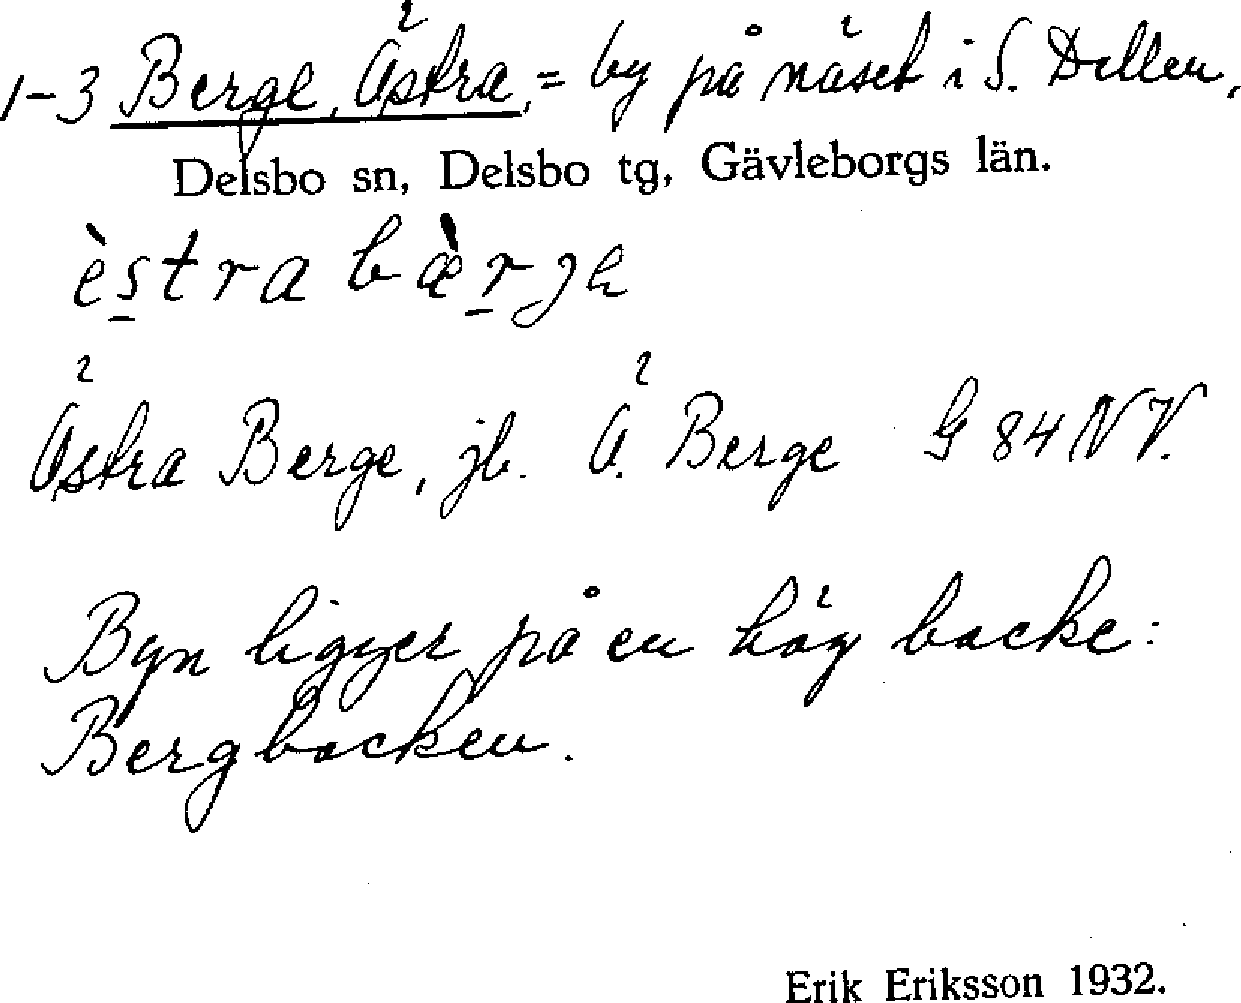 1-3 Berge, Östra, = by på näset i S. Dellen,
Delsbo sn, Delsbo tg, Gävleborgs län.
èstra bærje
Östra Berge, jb. Ö. Berge G 84 NV.
Byn ligger på en hög backe:
Bergbacken.
Erik Eriksson 1932.